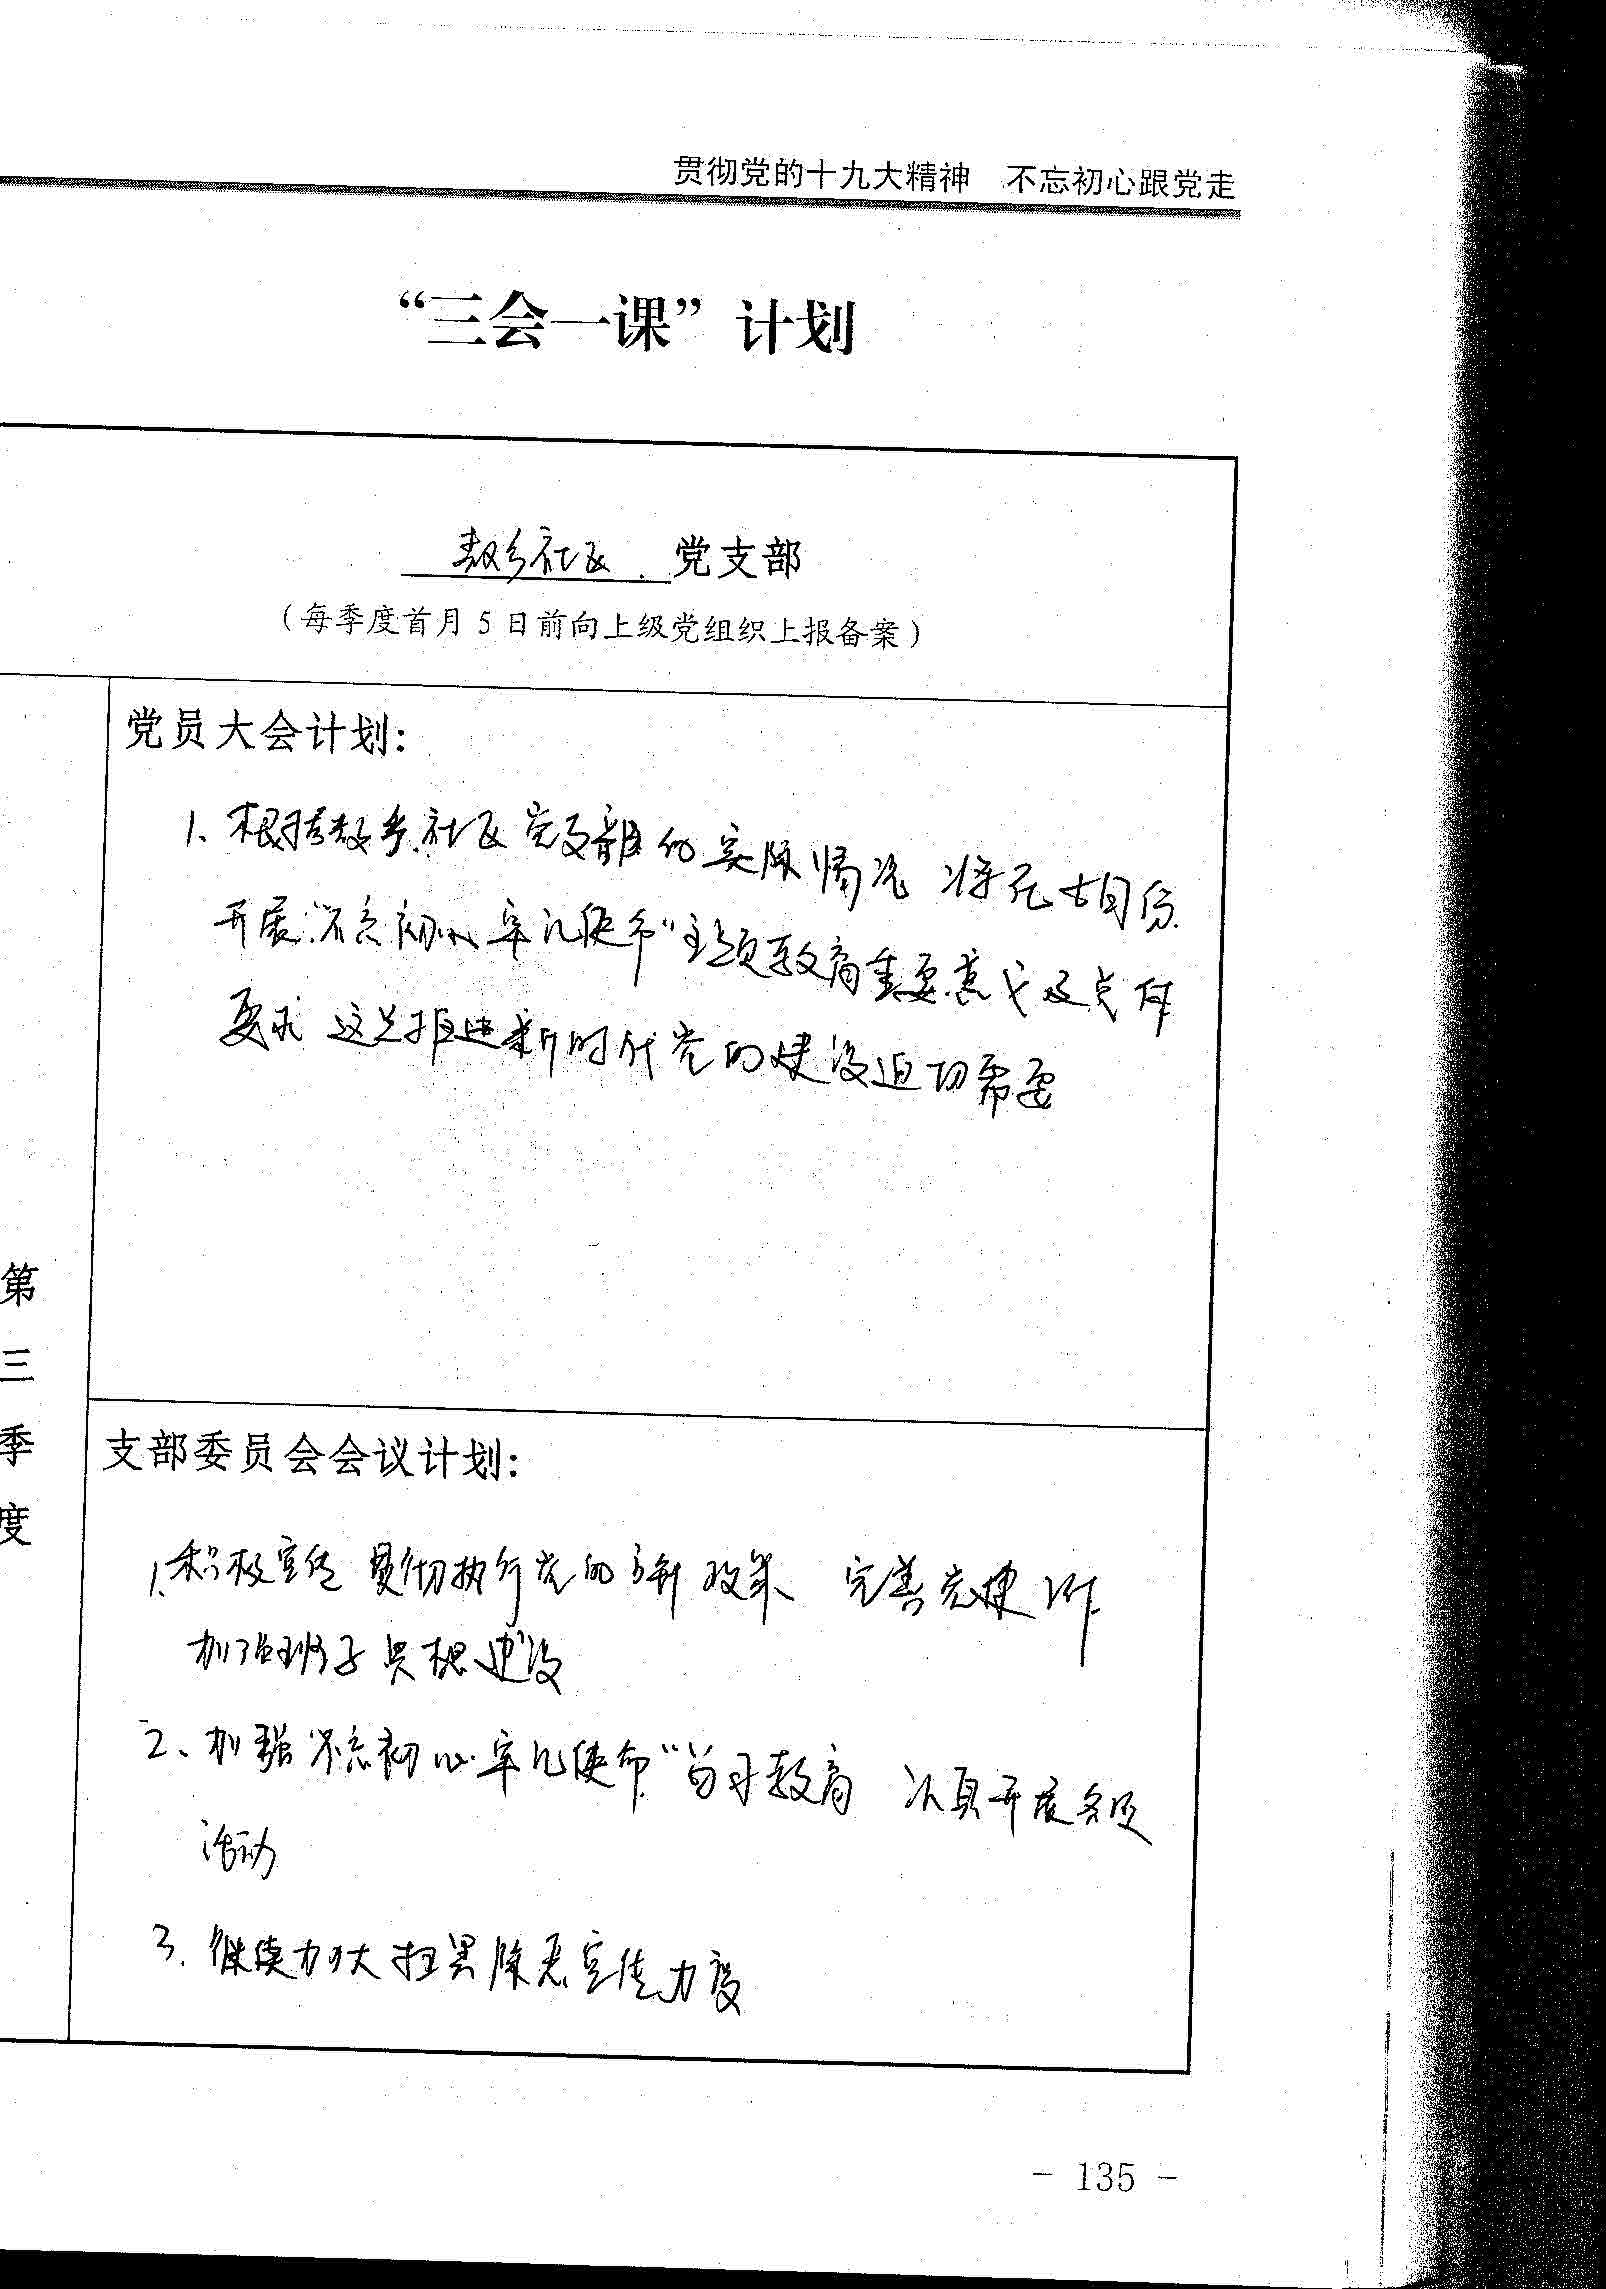 贯彻党的十九大精神 不忘初心跟党走
“三会一课”计划
社区 党支部
（每季度首月 5 日前向上级党组织上报备案）
党员大会计划：
1、根据敖乡社区党支部的实际情况 将在七月份
开展“不忘初心 牢记使命”主题教育重要意义及总体
要求 这是推进新时代党的建设迫切需要
第三季度
支部委员会会议计划：
1.积极宣传 贯彻执行党的方针政策、完善党建工作
加强班子思想建设
2、加强“不忘初心 牢记使命”学习教育 认真开展各项
活动
3. 继续加大扫黑除恶宣传力度
- 135 -